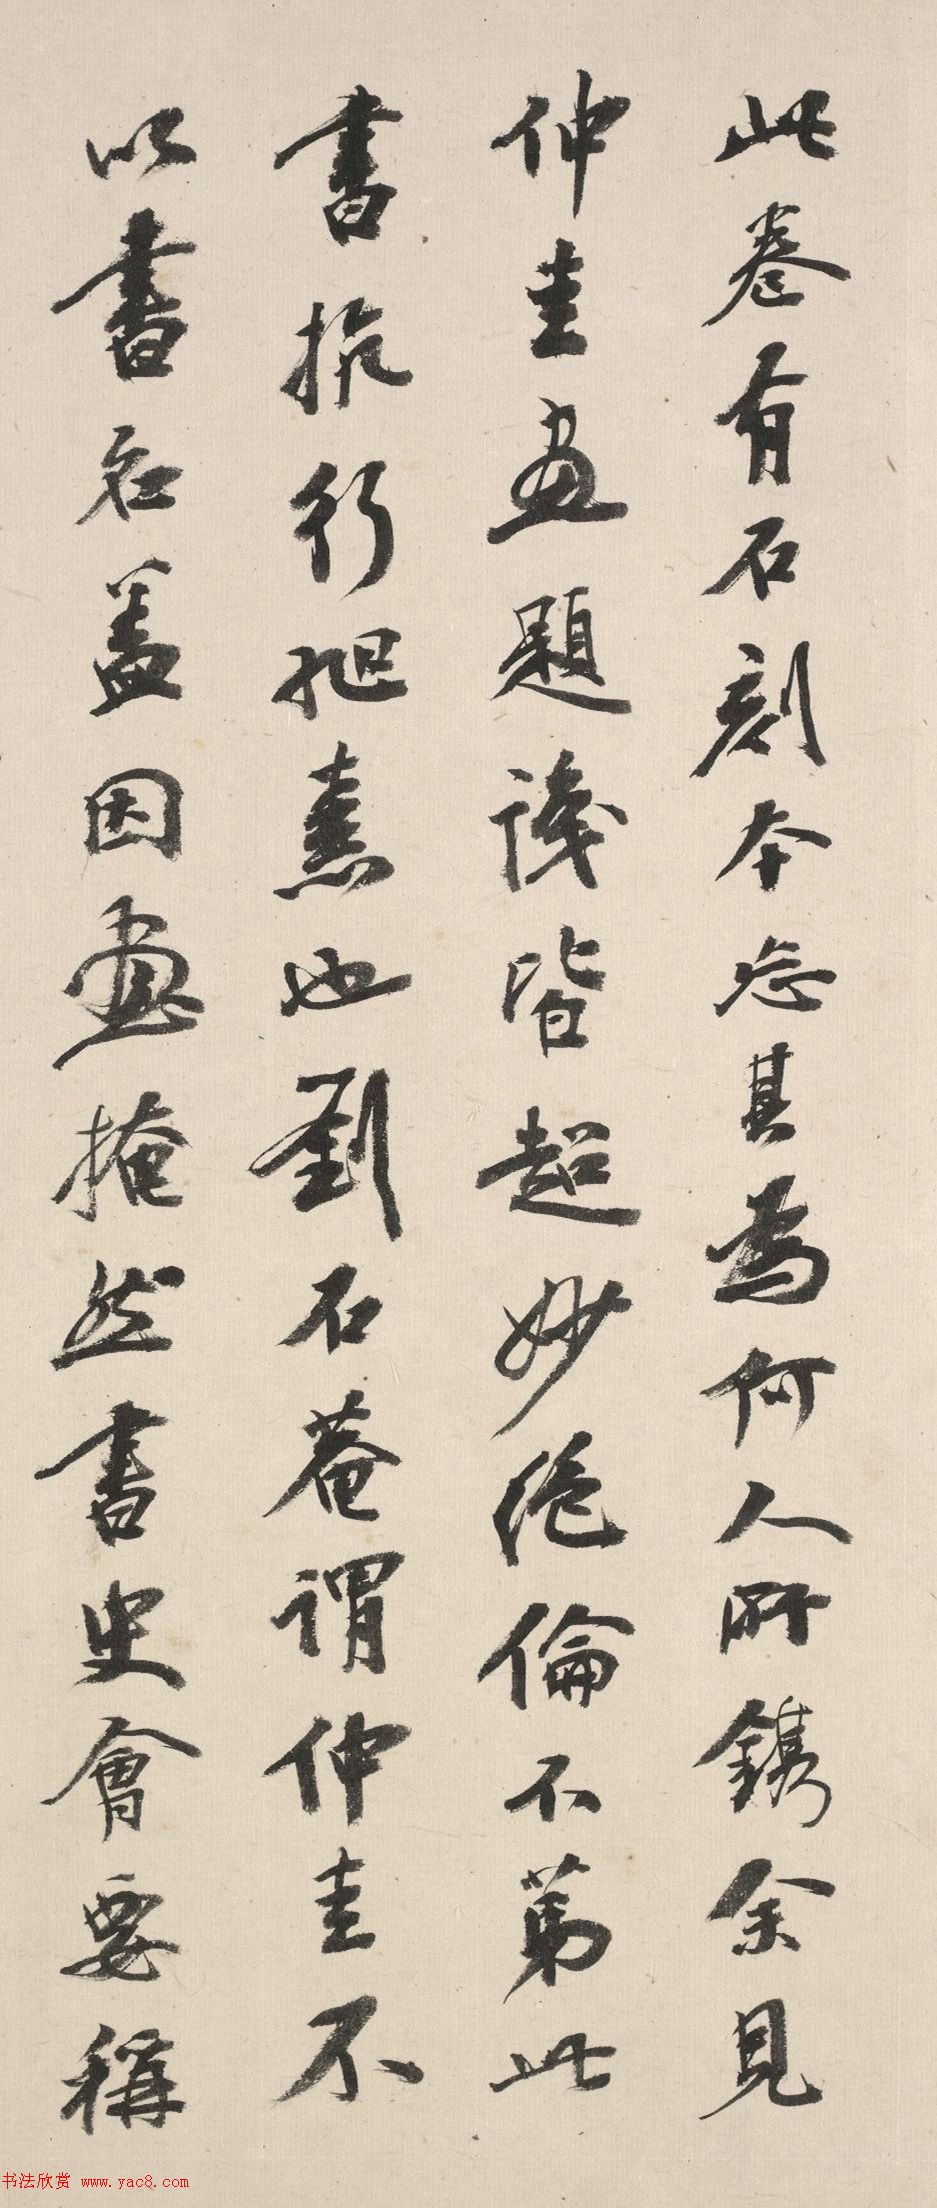 此卷有石刻本忘其為何人所鐫余見
仲圭画題識皆超妙绝倫不第此
書抗行旭素也劉石菴謂仲圭不
以書名盖因畫掩然書史會要稱
书法欣赏 www.yac8.com